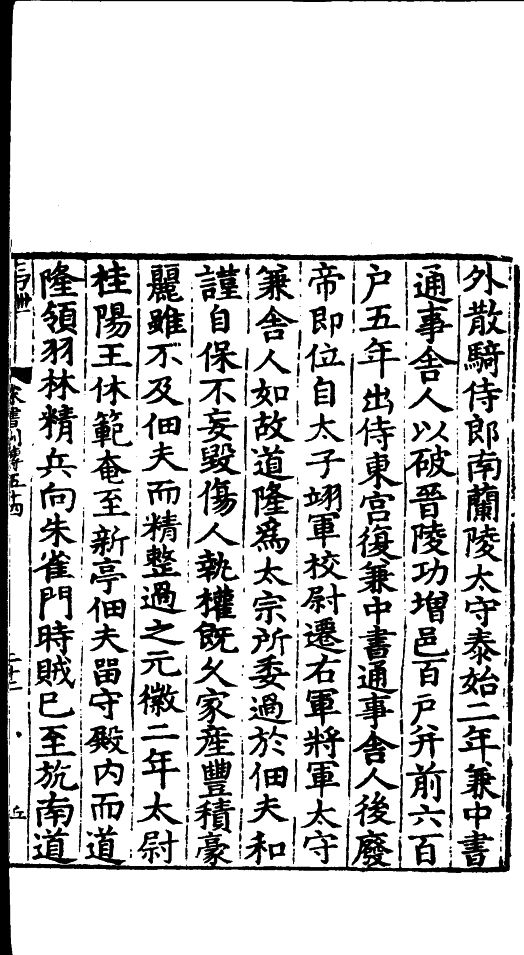 外散騎侍郎南蘭陵太守泰始二年兼中書
通事舍人以破晉陵功增邑百戶并前六百
户五年出侍東宮復兼中書通事舍人後廢
帝即位自太子翊軍校尉遷右軍將軍太守
兼舍人如故道隆爲太宗所委過於佃夫和
謹自保不妄毀傷人執權旣久家産豐積豪
麗雖不及佃夫而精整過之元徽二年太尉
桂陽王休範奄至新亭佃夫畱守殿内而道
隆領羽林精兵向朱雀門時賊已至航南道
宋書列傳五十四